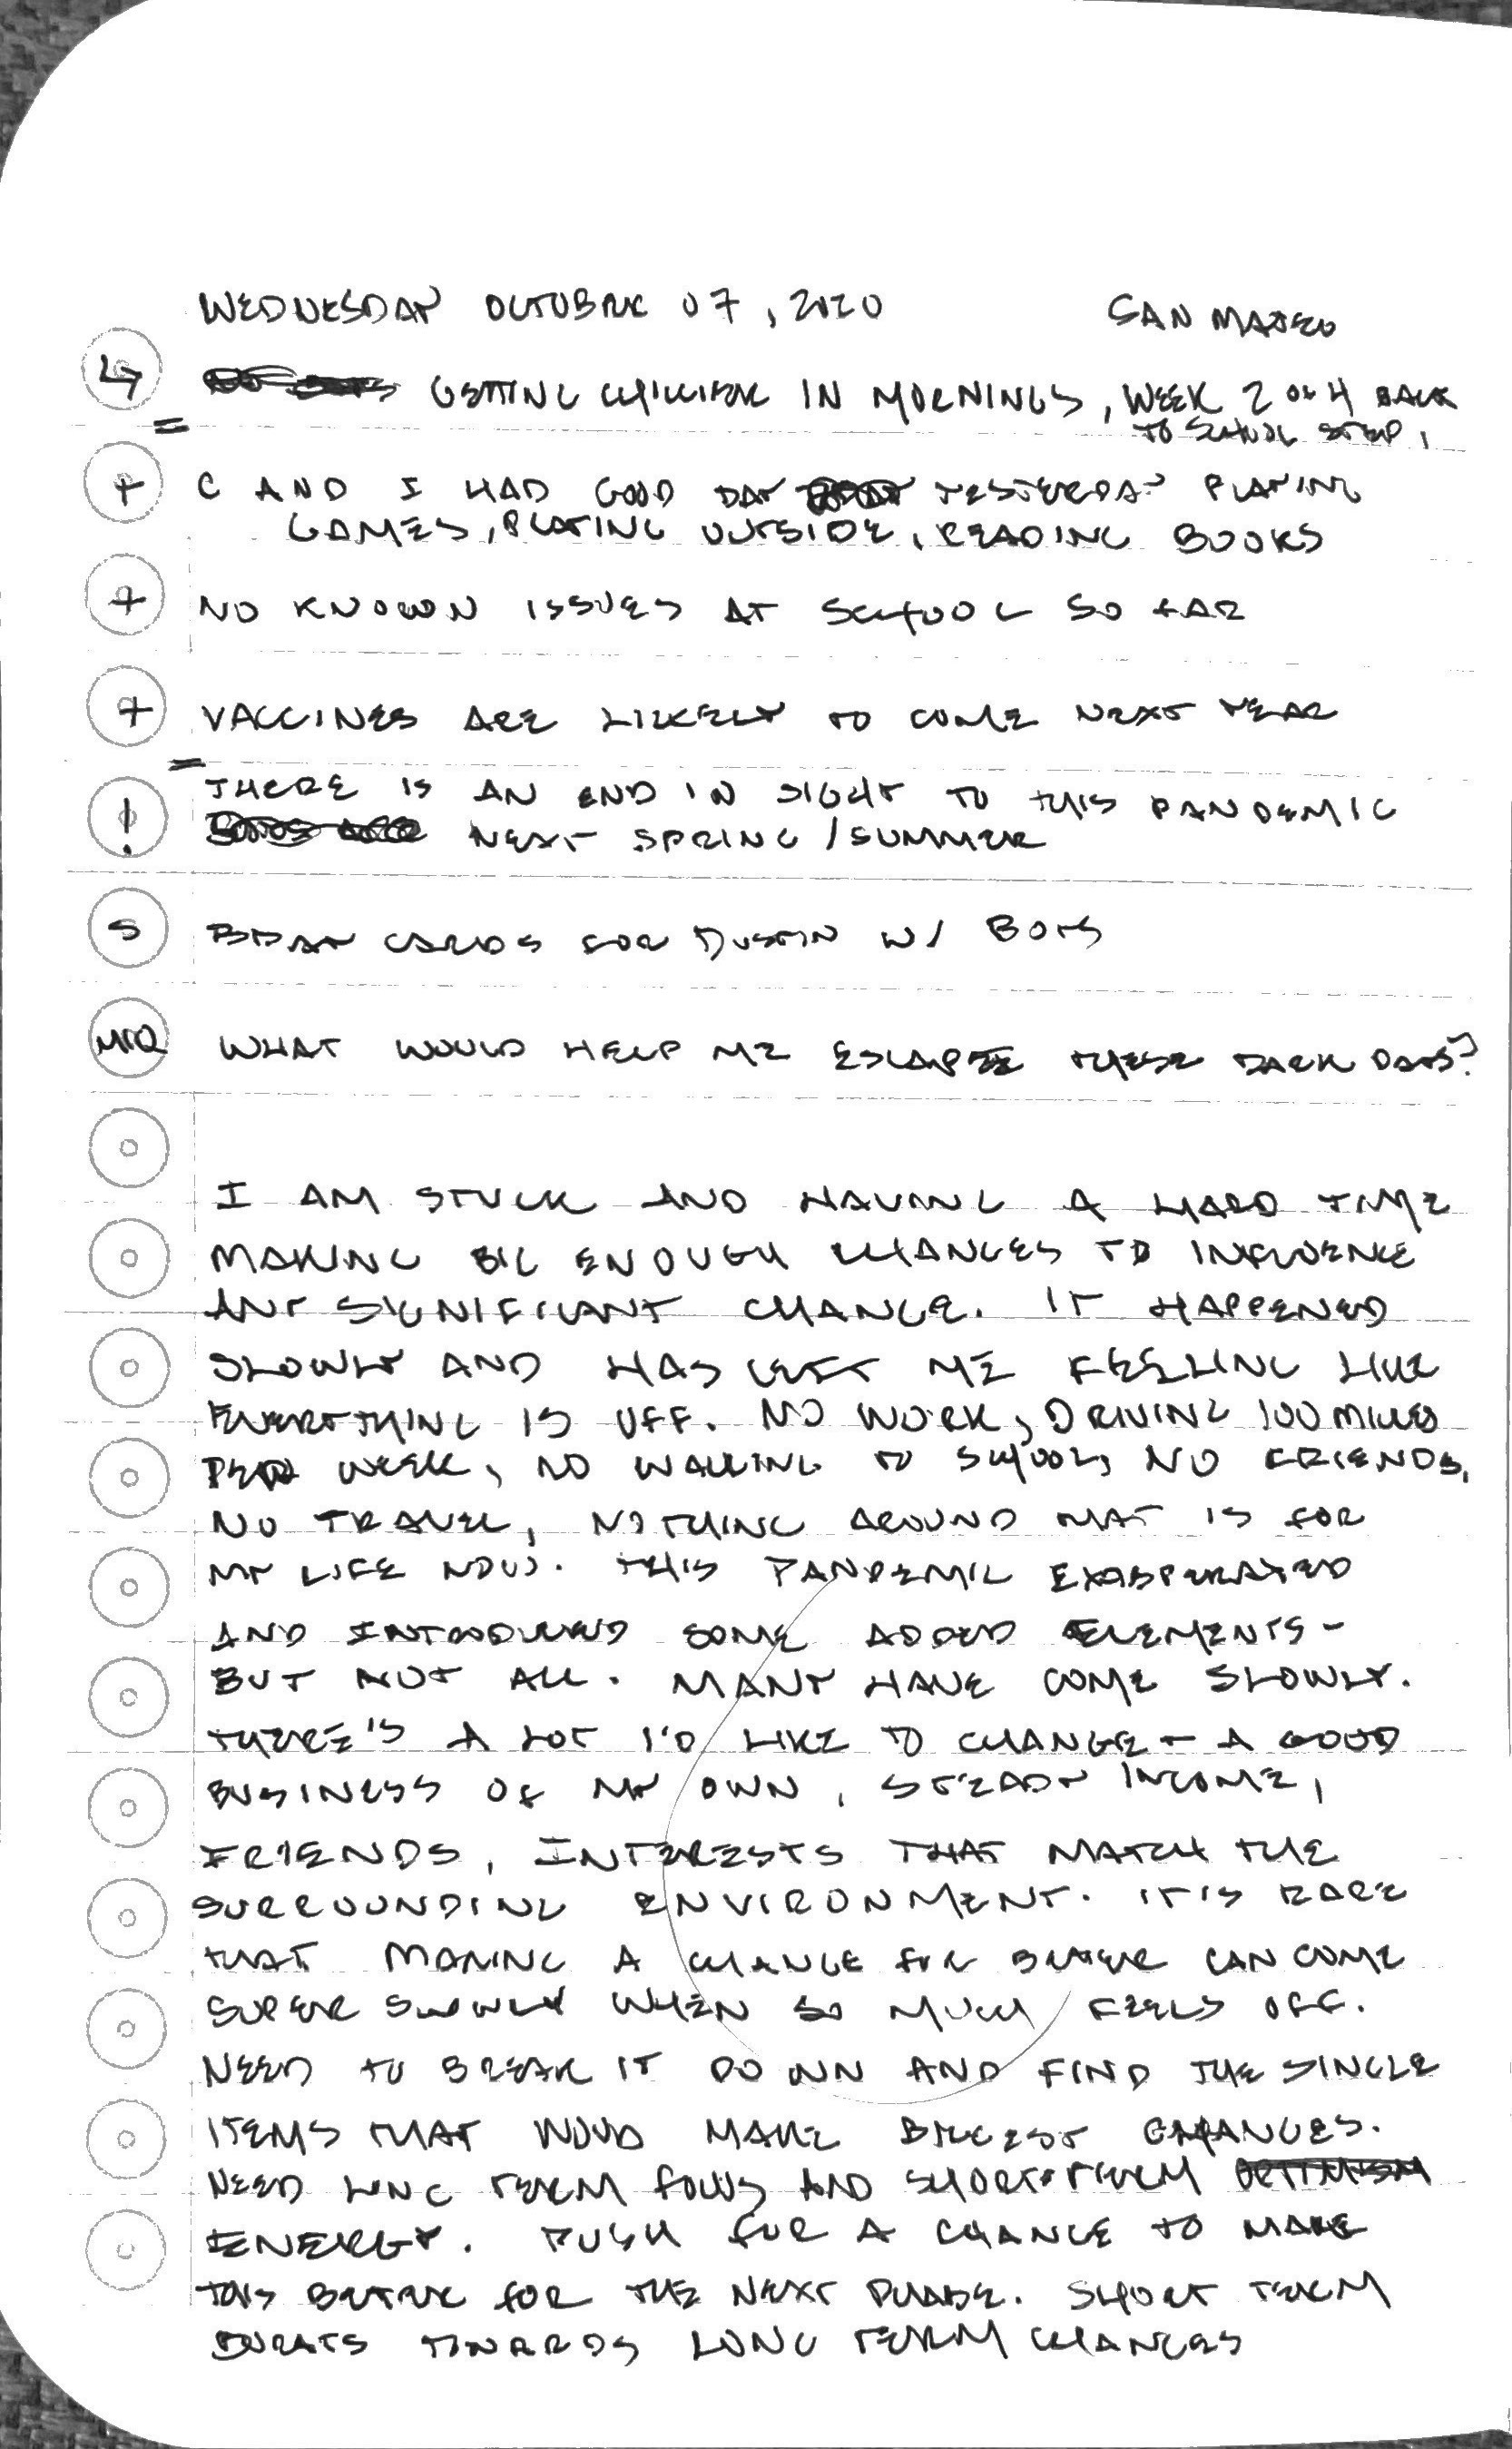 WEDNESDAY OCTOBER 07, 2020 SAN MATEO
↳ GETTING CHILLIER IN MORNINGS, WEEK 2 OF 4 BACK
= TO SCHOOL STEP,
+ C AND I HAD GOOD DAY YESTERDAY PLAYING
GAMES, PLAYING OUTSIDE, READING BOOKS
+ NO KNOWN ISSUES AT SCHOOL SO FAR
+ VACCINES ARE LIKELY TO COME NEXT YEAR
= THERE IS AN END IN SIGHT TO THIS PANDEMIC
! NEXT SPRING / SUMMER
S BDAY CARDS FOR DUSTIN W/ BOYS
WHAT WOULD HELP ME ESCAPE THESE DARK DAYS?
I AM STUCK AND HAVING A HARD TIME
MAKING BIG ENOUGH CHANGES TO INFLUENCE
ANY SIGNIFICANT CHANGE. IT HAPPENED
SLOWLY AND HAS LEFT ME FEELING LIKE
EVERYTHING IS OFF. NO WORK, DRIVING 100 MILES
PER WEEK, NO WALKING TO SCHOOL, NO FRIENDS,
NO TRAVEL, NOTHING AROUND THAT IS FOR
MY LIFE NOW. THIS PANDEMIC EXASPERATED
AND INTRODUCED SOME ADDED ELEMENTS -
BUT NOT ALL. MANY HAVE COME SLOWLY.
THERE'S A LOT I'D LIKE TO CHANGE - A GOOD
BUSINESS OF MY OWN, STEADY INCOME,
FRIENDS, INTERESTS THAT MATCH THE
SURROUNDING ENVIRONMENT. IT IS RARE
THAT MAKING A CHANGE FOR BETTER CAN COME
SUPER SLOWLY WHEN SO MUCH FEELS OFF.
NEED TO BREAK IT DOWN AND FIND THE SINGLE
ITEMS THAT WOULD MAKE BIGGEST CHANGES.
NEED LONG TERM FOCUS AND SHORT TERM OPTIMISM
ENERGY. PUSH FOR A CHANCE TO MAKE
THIS BETTER FOR THE NEXT PHASE. SHORT TERM
BURSTS TOWARDS LONG TERM CHANGES